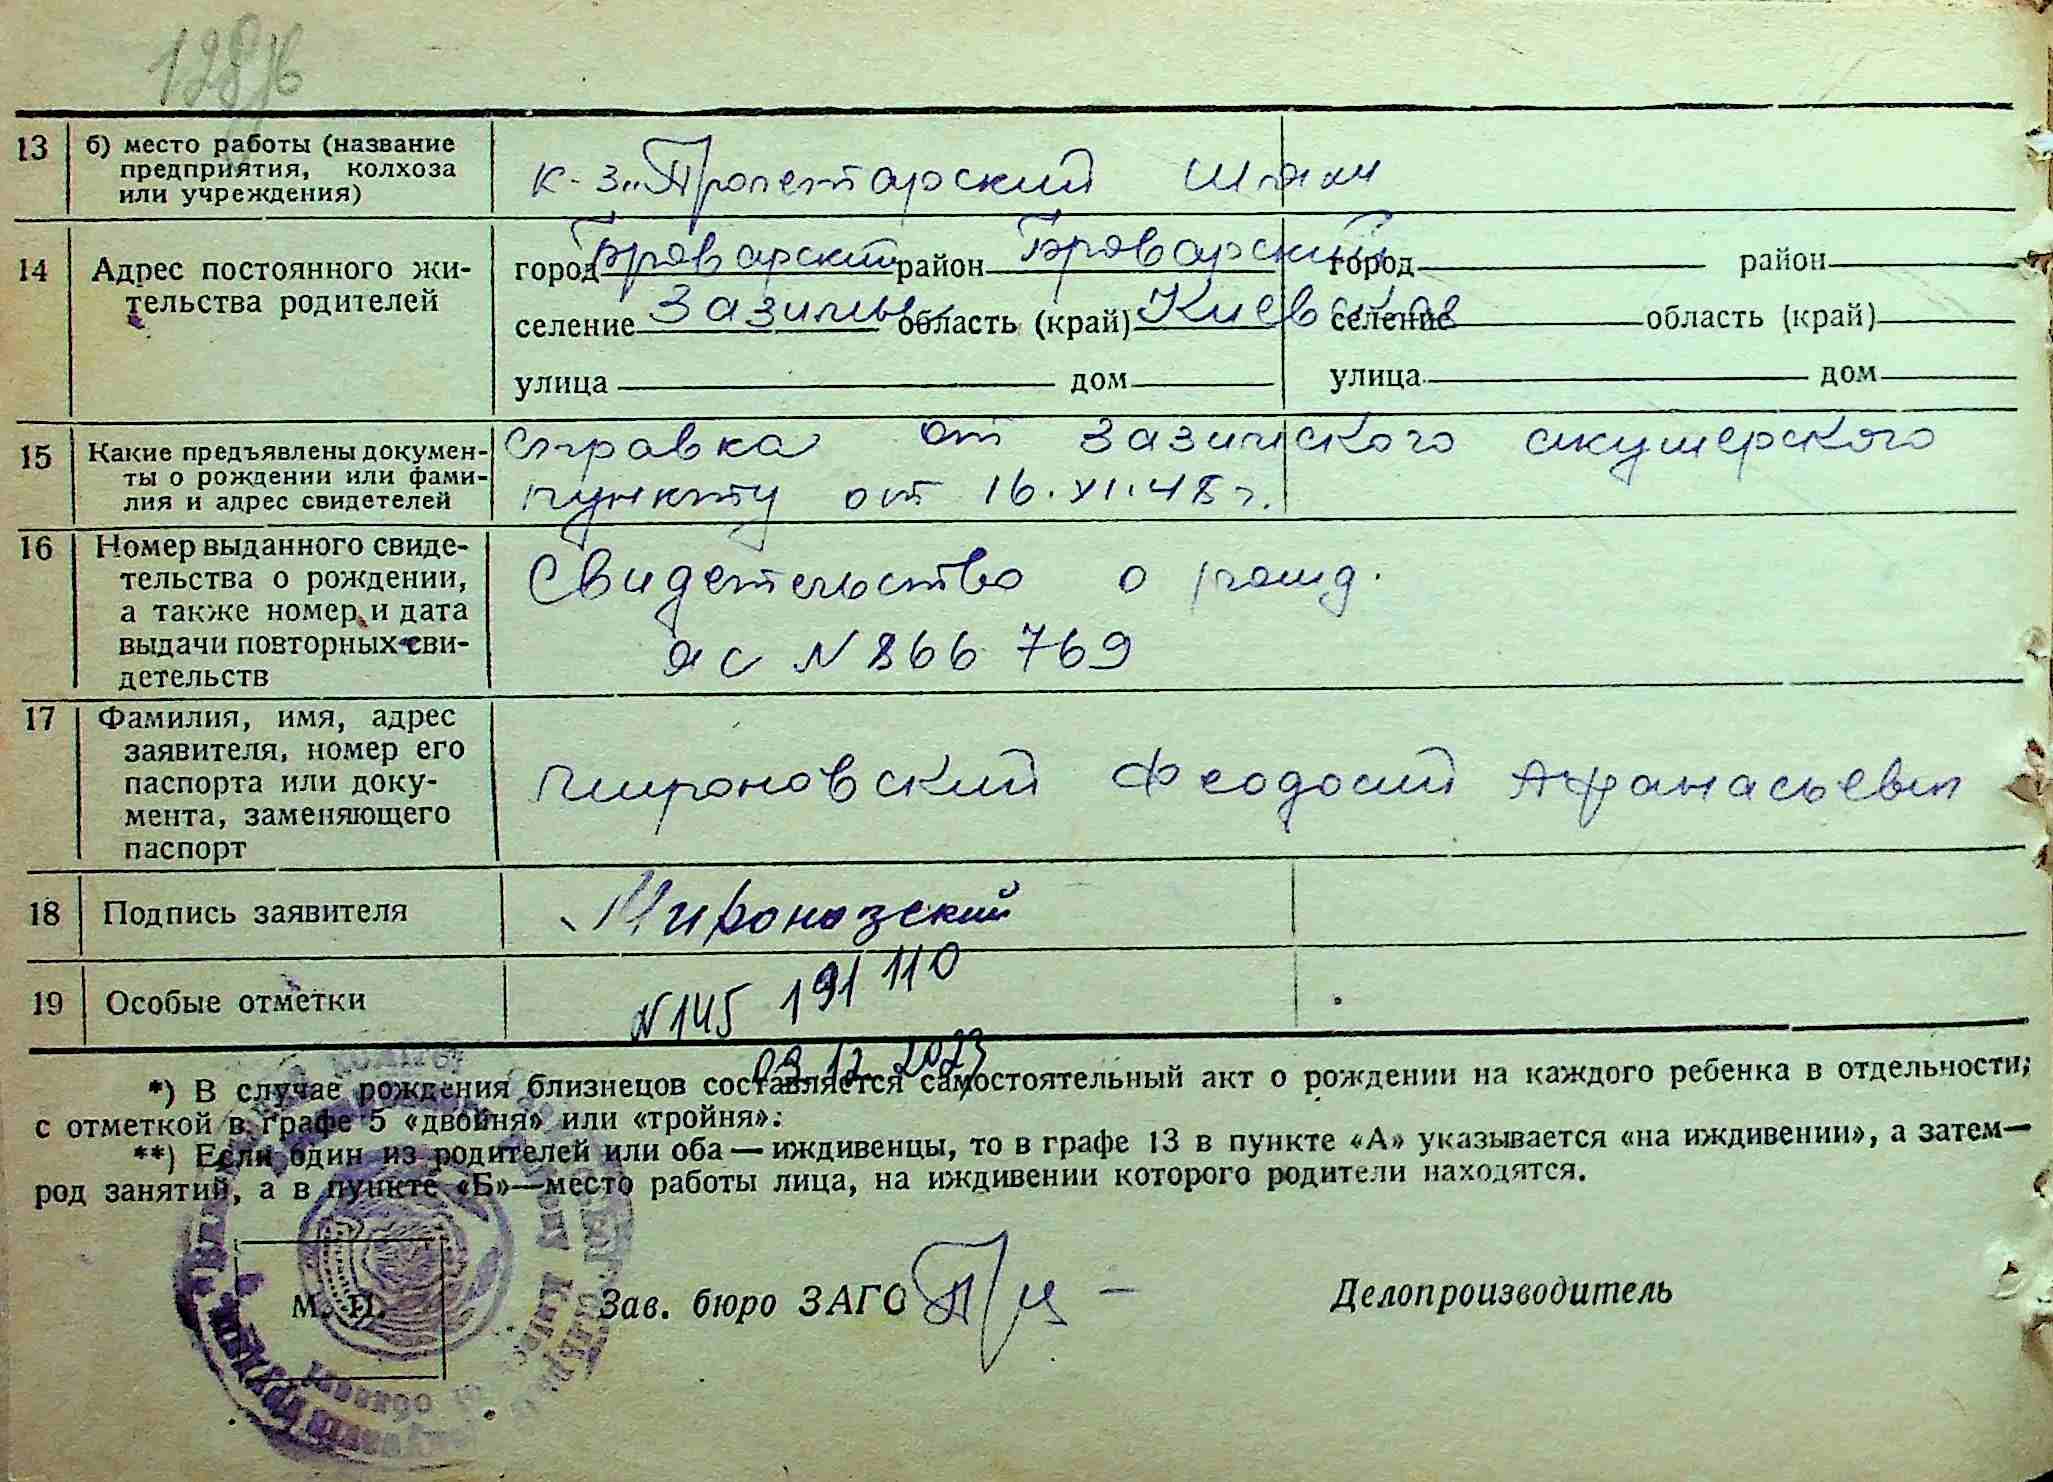 128
13 б) место работы (название
предприятия, колхоза
или учреждения)
к-з „Пролетарский шлях
14 Адрес постоянного жи-
тельства родителей
город Броварский район Броварский город район
селение Зазимье область (край) Киевская селение область (край)
улица дом улица дом
15 Какие предъявлены докумен-
ты о рождении или фами-
лия и адрес свидетелей
справка от Зазимского акушерского
пункту от 16.XI.48 г.
16 Номер выданного свиде-
тельства о рождении,
а также номер и дата
выдачи повторных сви-
детельств
Свидетельство о рожд.
яс N 866 769
17 Фамилия, имя, адрес
заявителя, номер его
паспорта или доку-
мента, заменяющего
паспорт
Мироновский Феодосий Афанасьевич
18 Подпись заявителя
Мироновский
19 Особые отметки
N 145 191 110
09.12.2023
*) В случае рождения близнецов составляется самостоятельный акт о рождении на каждого ребенка в отдельности;
с отметкой в графе 5 «двойня» или «тройня»:
**) Если один из родителей или оба — иждивенцы, то в графе 13 в пункте «А» указывается «на иждивении», а затем—
род занятий, а в пункте «Б»—место работы лица, на иждивении которого родители находятся.
М. П.
Зав. бюро ЗАГС
Делопроизводитель